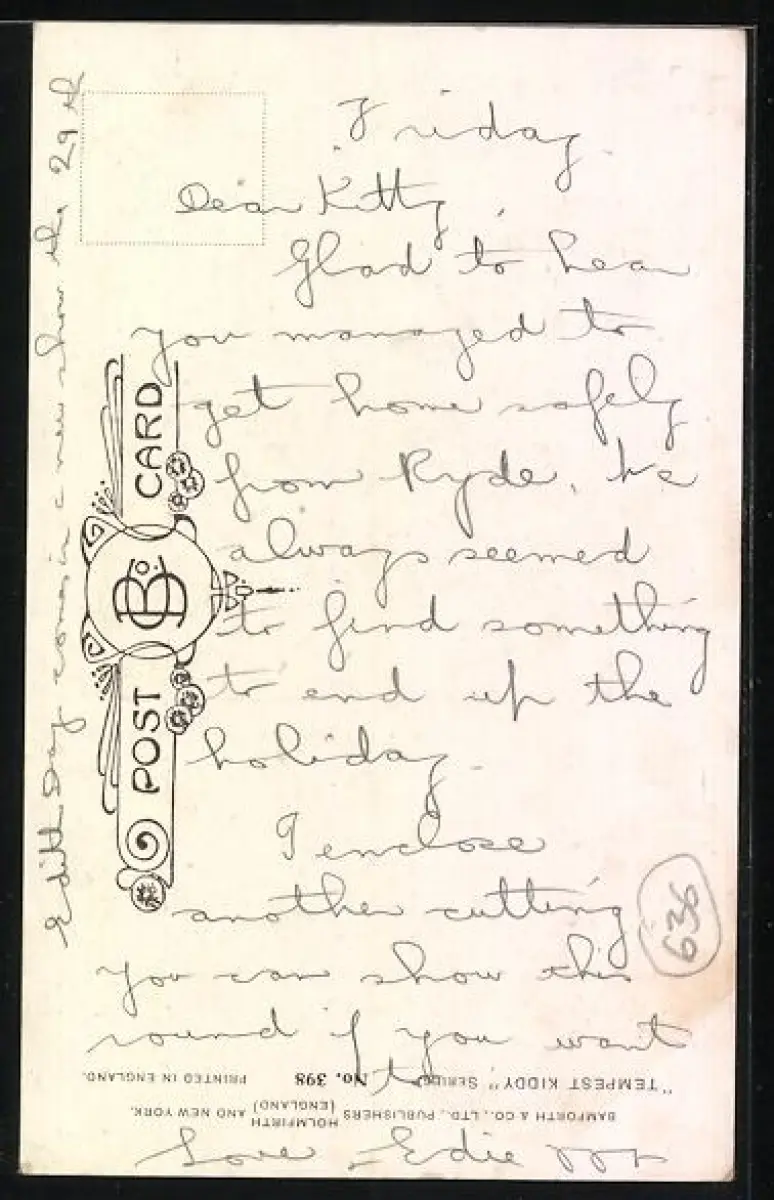 Friday
Dear Kitty,
Glad to hear
you managed to
get home safely
from Ryde. We
always seemed
to find something
to end up the
holiday.
I enclose
another cutting
you can show this
round if you want
to.
Love, Edie
Edith Day comes in a new show the 29th
POST CARD
B & Co.
636
"TEMPEST KIDDY" SERIES No. 398 PRINTED IN ENGLAND.
BAMFORTH & CO., LTD., PUBLISHERS HOLMFIRTH (ENGLAND) AND NEW YORK.